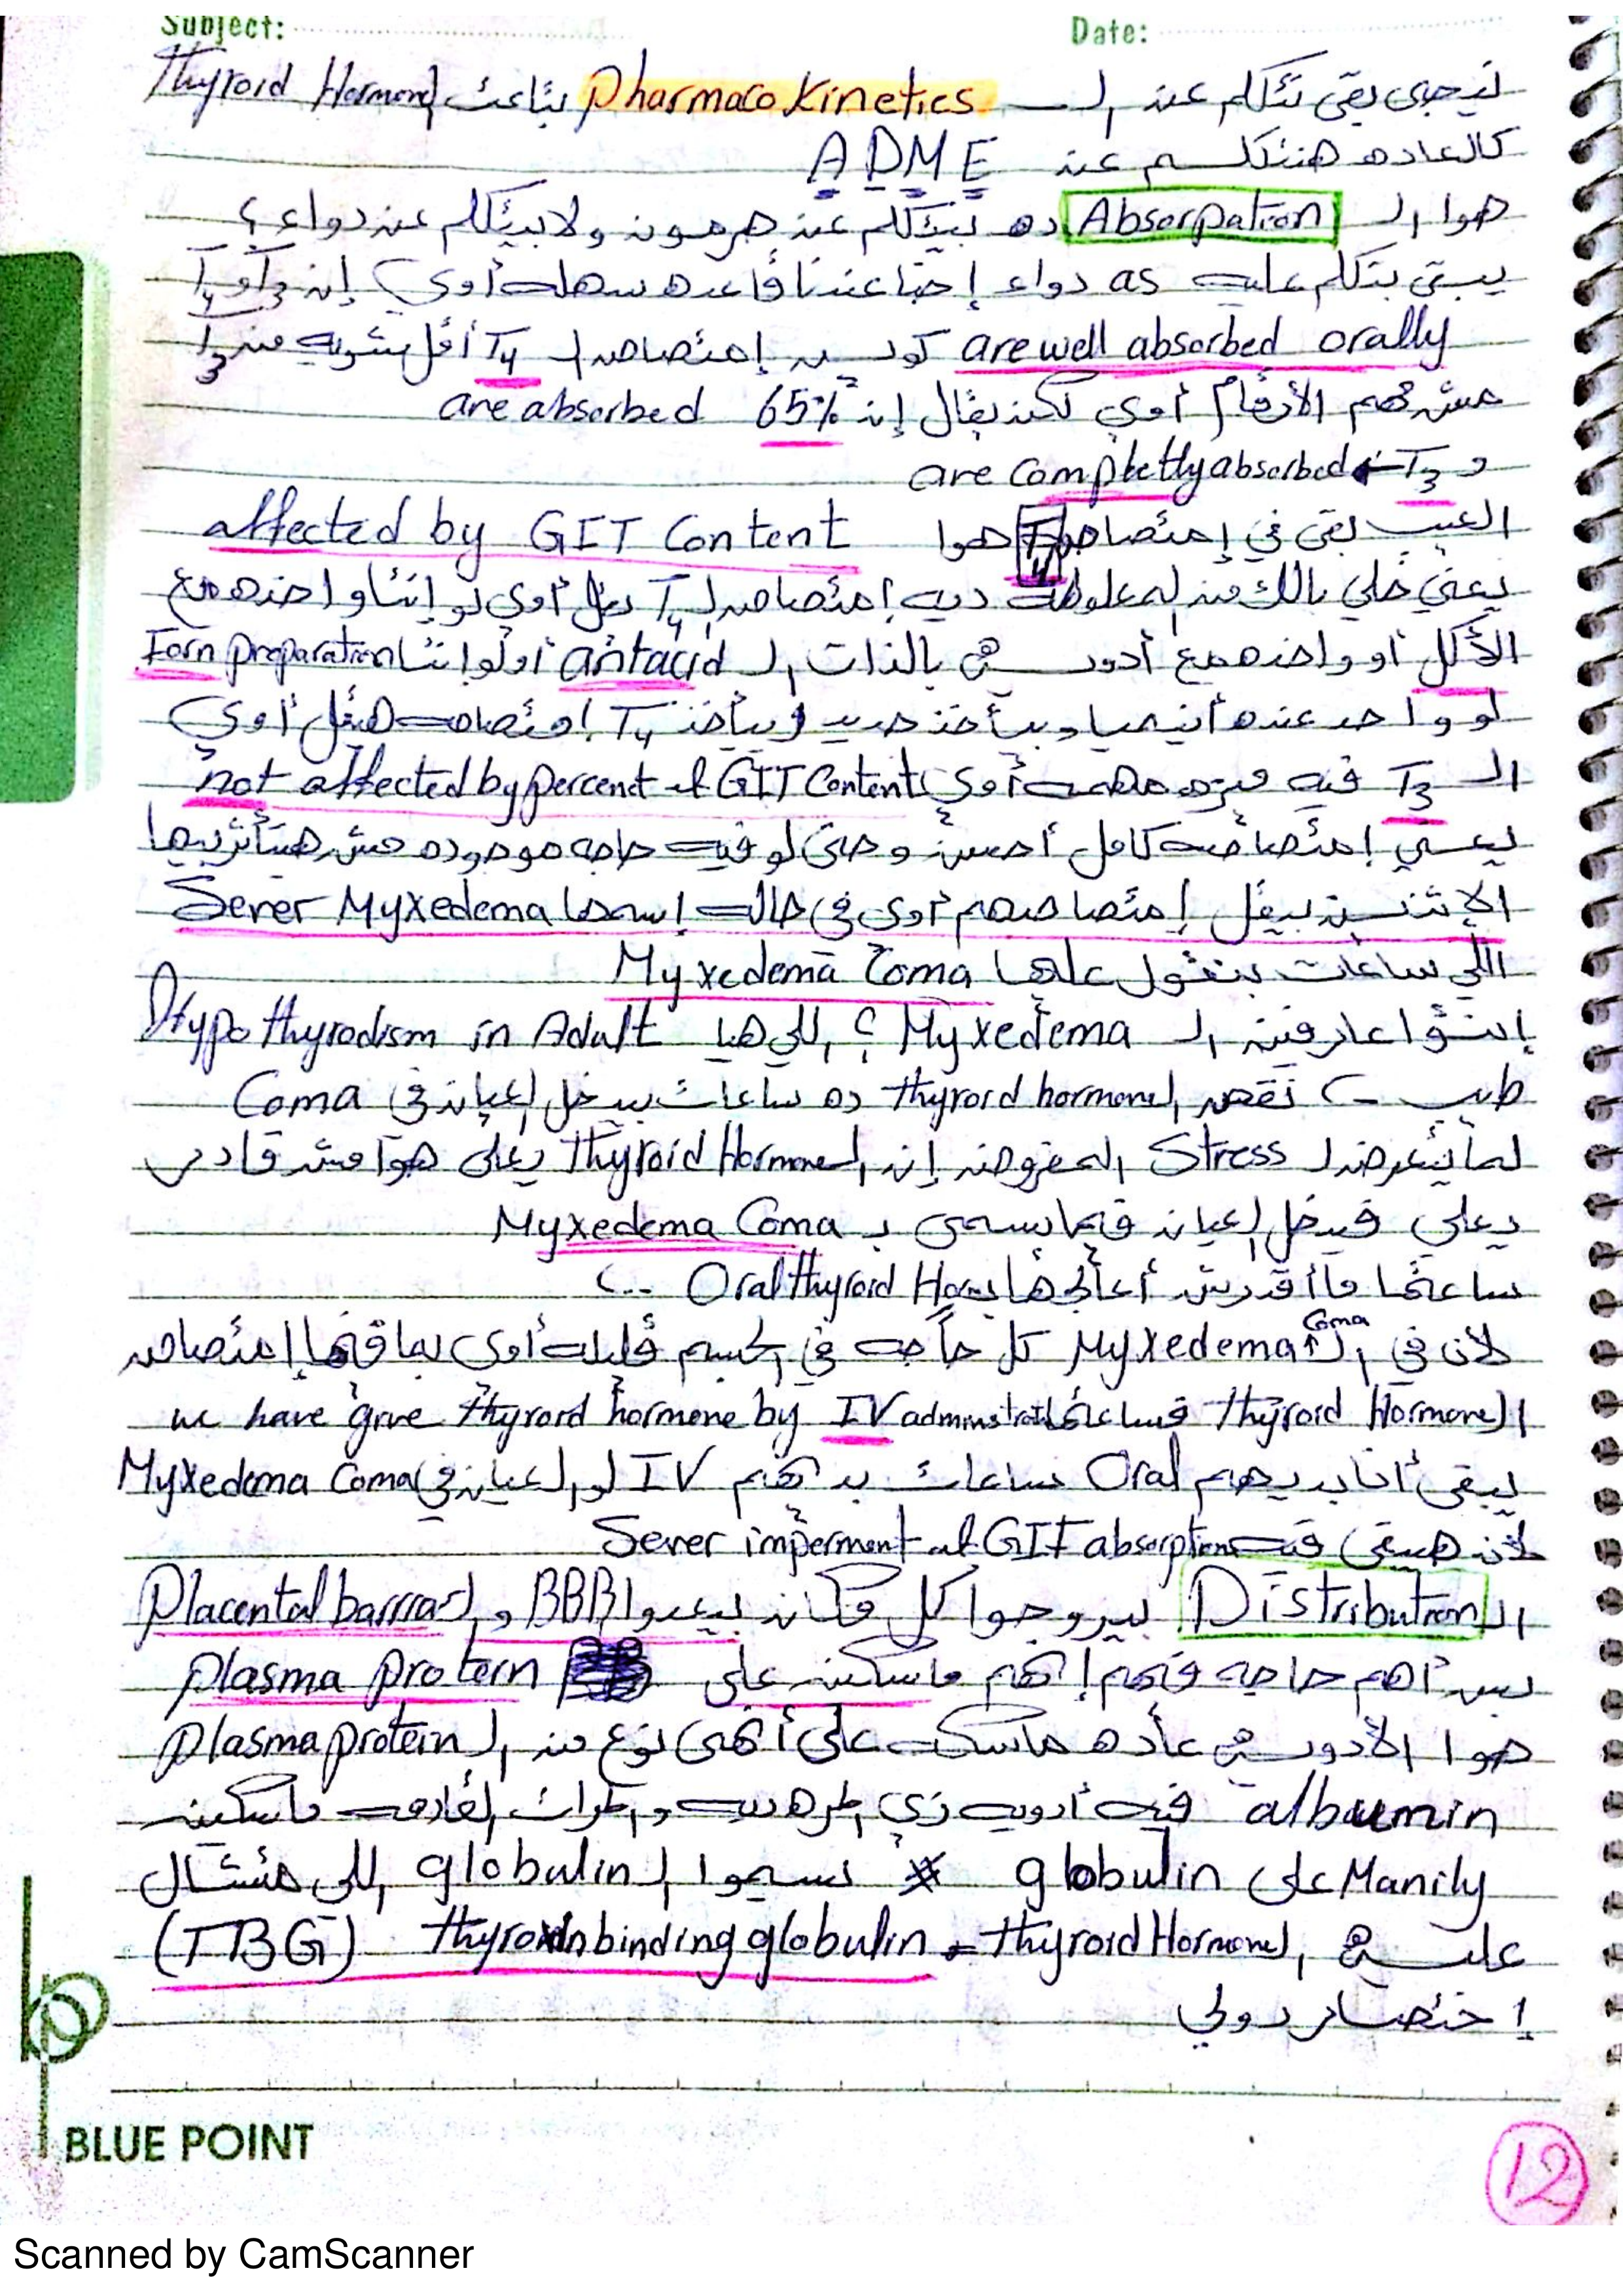 Subject: Date:
نيجي بقى نتكلم عن الـ Pharmaco Kinetics بتاعت الـ Thyroid Hormone
كالعاده هنتكلم عن A D M E
هوا الـ Absorpation ده بيتكلم عن هرمون ولا بيتكلم عن دواء ؟
يبقى بتكلم عليه as دواء إحنا عندنا قاعده سهله أوي إن T3 و T4
are well absorbed orally كويس إمتصاص الـ T4 أقل بشويه من T3
مش مهم الأرقام أوي لكن يقال إن 65% are absorbed
و T3 ← are completly absorbed
العيب بقى في إمتصاص T4 هوا affected by GIT Content
يعني خلي بالك من المعلومة ديه إمتصاص الـ T4 يقل أوي لو إنتا واخده مع
الأكل أو واخده مع أدويه بالذات الـ antacid أو لو إنتا Iorn preparation
لو واحد عنده أنيميا وبياخذ حديد وبياخذ T4 إمتصاصه هيقل أوي
الـ T3 فيه ميزه مهمه أوي not affected by percent of GIT Content
يعني إمتصاصه كامل أحسن وحتى لو فيه حاجه موجوده مش هيتأثر بيها
الإتنين بيقل إمتصاصهم أوي في حاله إسمها Sever Myxedema
اللي ساعات بنقول عليها Myxedema Coma
إنتوا عارفين الـ Myxedema ؟ اللي هيا Hypothyrodism in Adult
طيب نقص الـ thyroid hormone ده ساعات بيدخل العيان في Coma
لما يتعرض لـ Stress المفروض إن الـ Thyroid Hormone يعلى هوا مش قادر
يعلي فيدخل العيان فيما يسمى بـ Myxedema Coma
ساعتها ماأقدرش أعالجها بـ Oral thyroid Hor
لأن في الـ Myxedema Coma كل حاجه في الجسم قليله أوي بما فيها إمتصاص
الـ Thyroid Hormone فساعتها we have give thyroid hormone by IV adminstrat
يبقى أنا بديهم Oral ساعات بديهم IV لو العيان في Myxedema Coma
لأن هيبقى فيه Sever imperment of GIT absorption
الـ Distribution بيروحوا كل مكان بيعدوا الـ BBB و الـ Placental barrrar
بس أهم حاجه فيهم إنهم ماسكين على plasma protein
هوا الأدويه عاده ماسكه على أنهى نوع من الـ plasma protein
albumin فيه أدويه زي الـ ماسكين
Manily على globulin نسموا الـ globulin اللي هتتشال
عليه الـ thyroid Hormone = thyroxin binding globulin (TBG)
إختصار دولي
BLUE POINT
12
Scanned by CamScanner